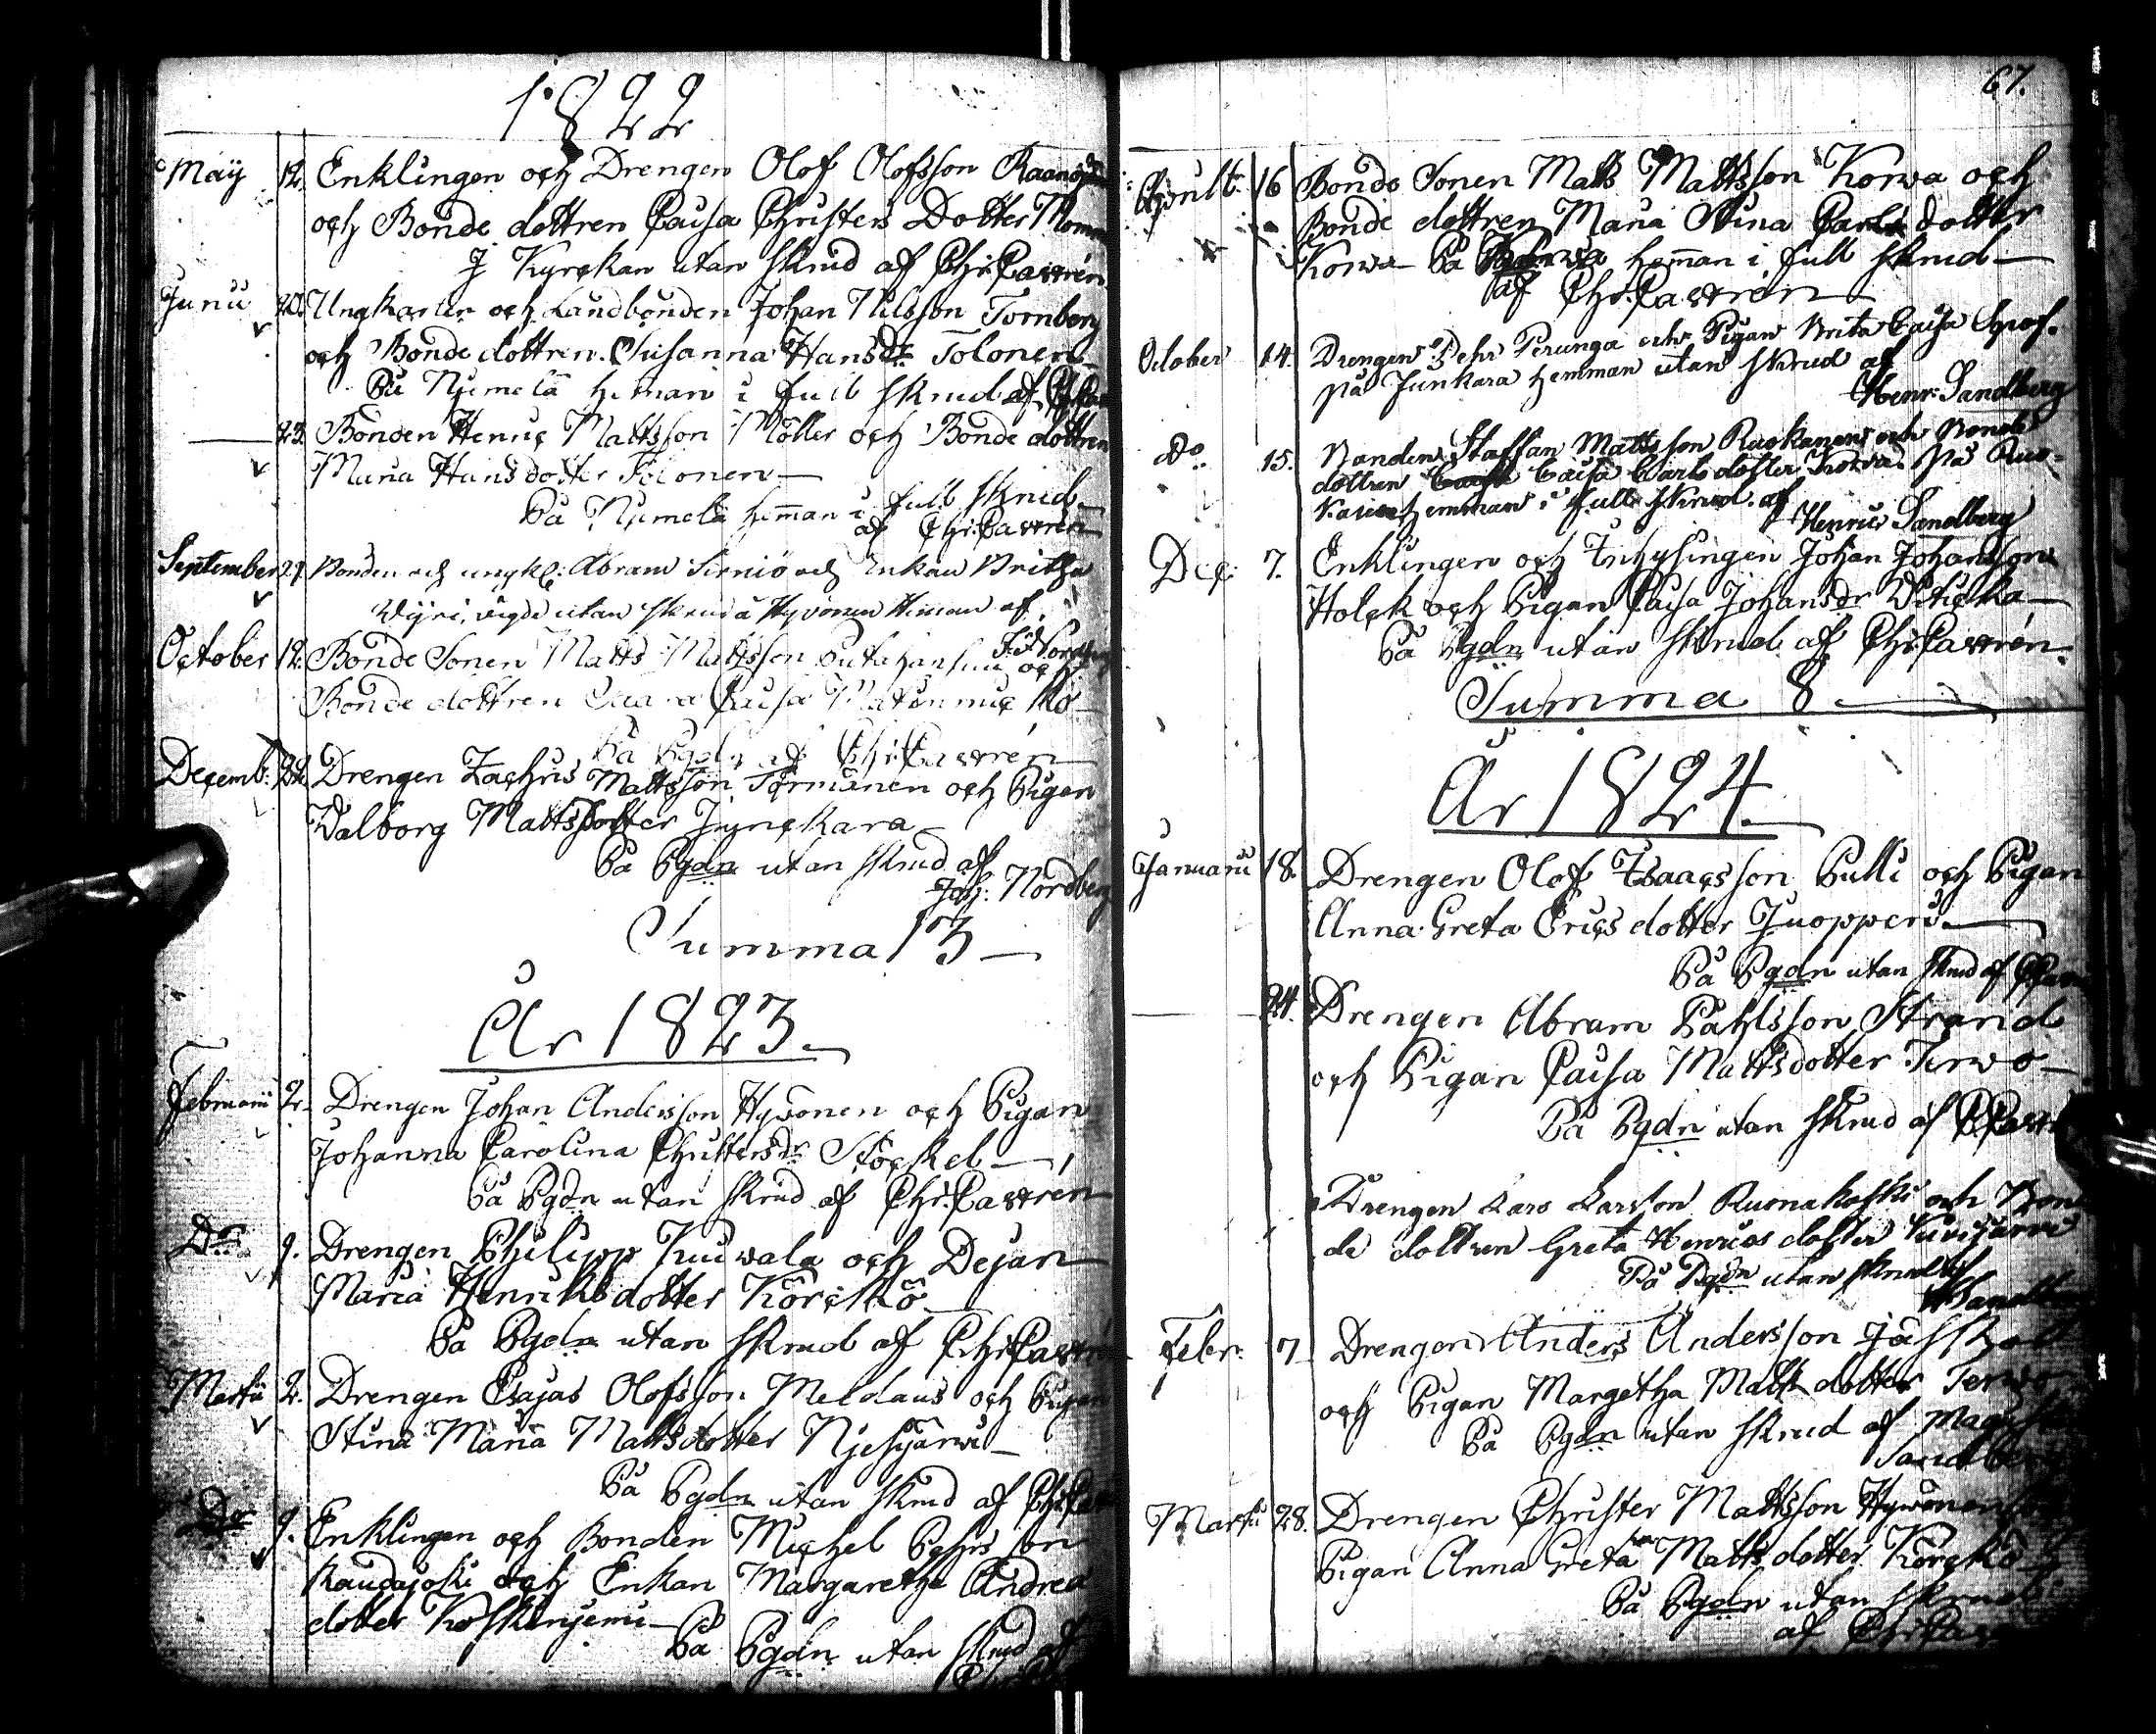 1822
May 12. Enklingen och Drengen Olof Olofsson
och Bonde dottren Caisa Christers Dotter
I Kyrckan utan skrud af Chr: Castrén
Junii 20. Ungkarlen och Landbonden Johan Nilsson Tornberg
och Bonde dottren Susanna Hansdr Tolonen
På Njemelä heman i full skrud af
23. Bonden Henric Mattsson Möller och Bonde dottren
Maria Hansdotter Tolonen
På Njemelä heman i full skrud
af Chr: Castrén
September 21. Bonden och ungk: Abram Sirniö och Enkan Britha
Wijri, vigde utan skrud å Hyvönen Heman af
October 12. Bonde Sonen Matts Mattsson och
Bonde dottren Caisa
På Pgdn af Chr: Castrén
Decemb: Drengen Zachris Mattsson Tormänen och Pigan
Walborg Mattsdotter Junckara
På Pgdn utan skrud af
Joh: Nordberg
Summa 13
År 1823.
Februarii 2. Drengen Johan Andersson Hyvönen och Pigan
Johanna Carolina Christersdr Stöckel
På Pgdn utan skrud af Chr: Castrén
Do 9. Drengen Philipp Kuuvala och Dejan
Maria Henriksdotter Körckö
På Pgdn utan skrud af Chr: Castrén
Martii 2. Drengen Esajas Olofsson Meldaus och Pigan
Stina Maria Mattsdotter Njesijärvi
På Pgdn utan skrud af
Do 9. Enklingen och Bonden Michel Pehrsson
Raudajoki och Enkan Margaretha Andrea
dotter Koskenjemi
På Pgdn utan skrud af
67.
16 Bonde Sonen Matts Mattsson Korva och
Bonde dottren Maria Stina Carls dotter
Korva På heman i full skrud
af Chr: Castrén
October 14. Drengen Pehr Perunga och Pigan Brita Caisa
på Junkara hemman utan skrud af
Henr: Sandberg
Do 15. Bonden Staffan Mattsson Ruokanen och Bonde
dottren Caisa Carlsdotter Korva på
hemman i full skrud af
Henric Sandberg
Dec: 7. Enklingen och Inhysingen Johan Johansson
Holck och Pigan Caisa Johansdr Witicka
På Pgdn utan skrud af Chr: Castrén
Summa 8
År 1824.
Januarii 18. Drengen Olof Isaacsson Pulli och Pigan
Anna Greta Ericsdotter Juopperi
På Pgdn utan skrud af
24. Drengen Abram Pahlsson Strand
och Pigan Caisa Mattsdotter Tervo
På Pgdn utan skrud af
Drengen Lars Larsson Ruonakoski och Bon
de dottren Greta Henrics dotter
På Pgdn utan skrud af
Febr: 7 Drengen Anders Andersson
och Pigan Margetha Matts dotter
På Pgdn utan skrud af Mag:
Sandberg
Martii 28. Drengen Christer Mattsson Hyvönen
Pigan Anna Greta Mattsdotter Körckö
På Pgdn utan skrud
af